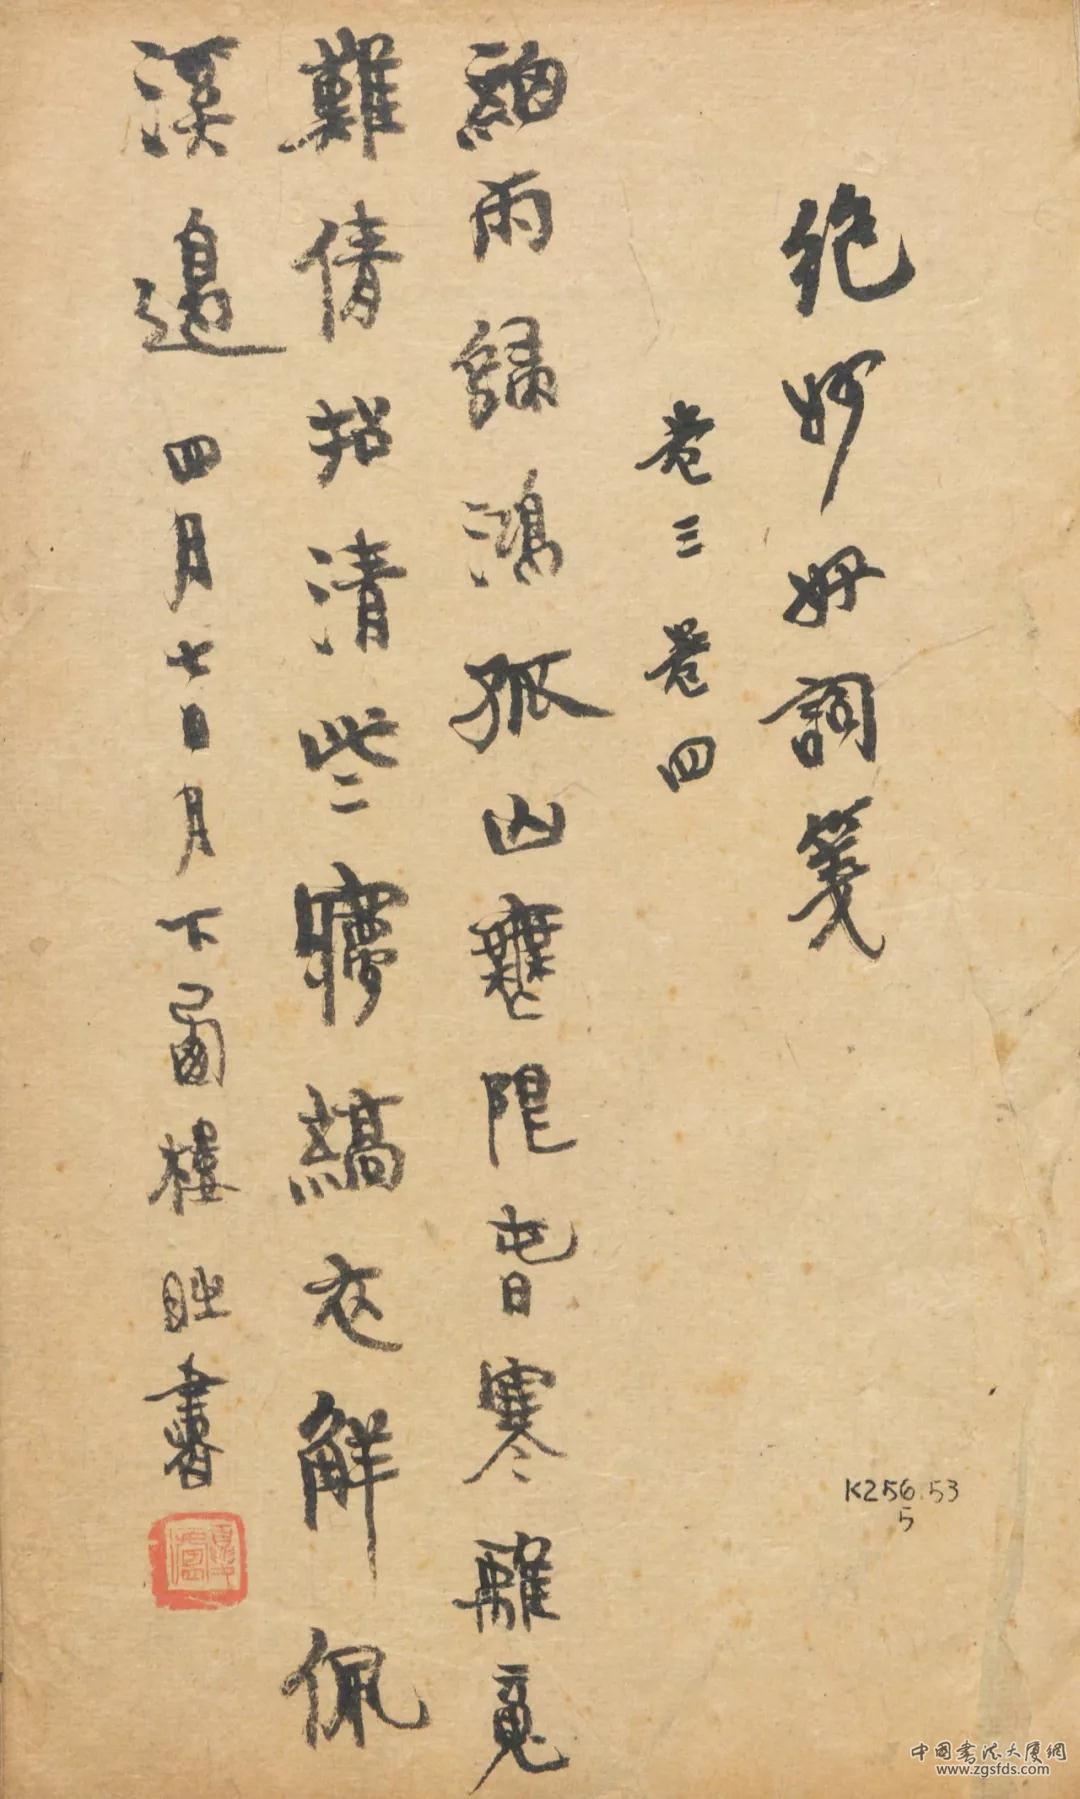 絶妙好詞箋
卷三 卷四
細雨歸鴻孤山無限旾寒離䰟
難倩招清些夢縞衣解佩
溪邊 四月七日月下樓書
K256.53
5
中國書法大厦網
www.zgsfds.com